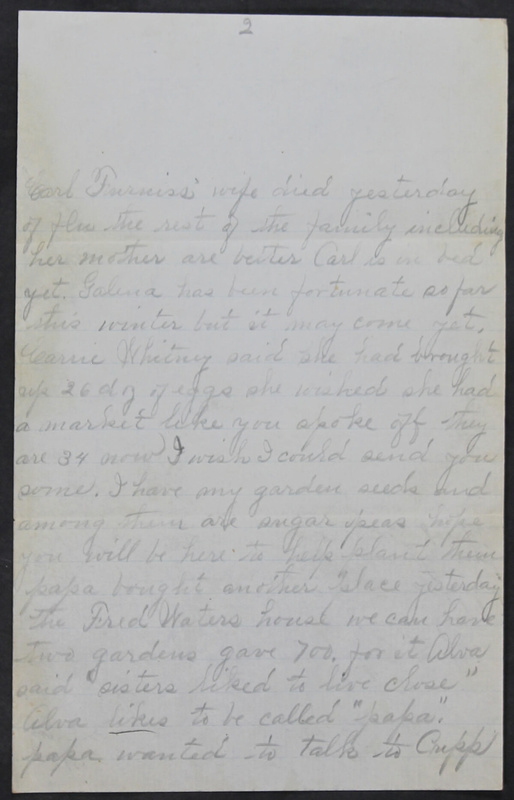 2
Carl Furniss' wife died yesterday
of flu the rest of the family including
her mother are better Carl is in bed
yet. Galena has been fortunate so far
this winter but it may come yet.
Carrie Whitney said she had brought
up 26 doz of eggs she wished she had
a market like you spoke off they
are 34 now I wish I could send you
some. I have my garden seeds and
among them are sugar peas hope
you will be here to help plant them
papa bought another place yesterday
the Fred Waters house we can have
two gardens gave 700. for it Alva
said "sisters liked to live close"
Alva likes to be called "papa".
papa wanted to talk to Cupp